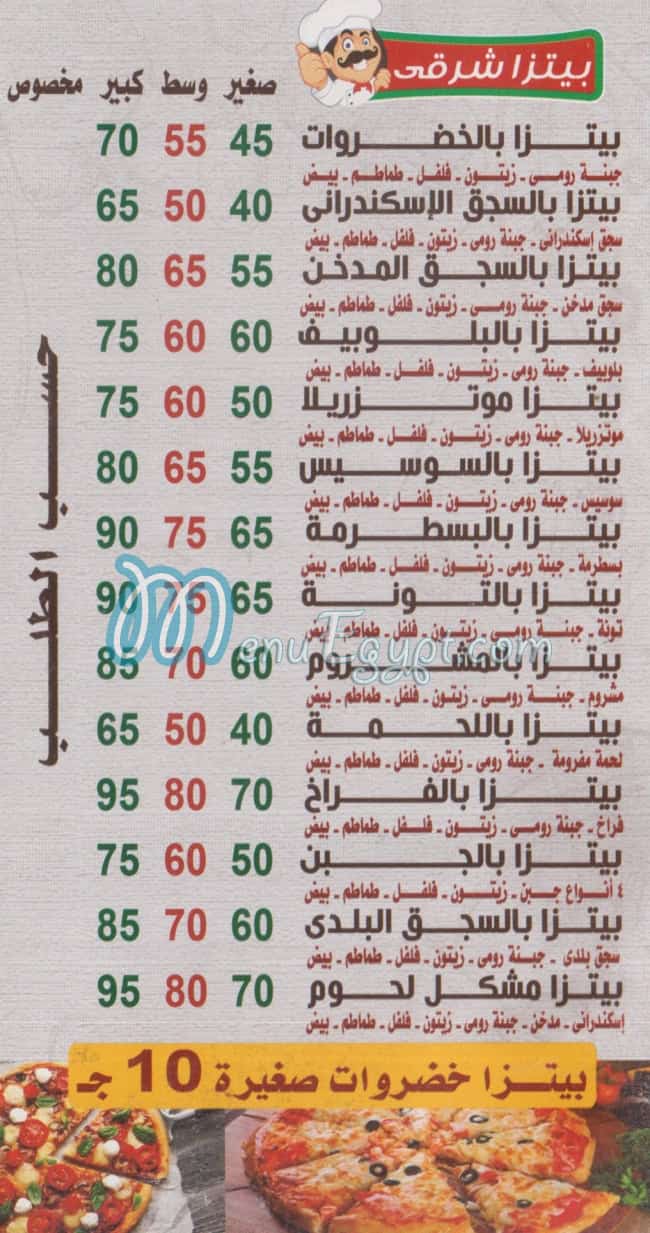 بيتزا شرقى
صغير وسط كبير مخصوص
بيتزا بالخضروات 45 55 70
جبنة رومى - زيتون - فلفل - طماطم - بيض
بيتزا بالسجق الإسكندرانى 40 50 65
سجق إسكندرانى - جبنة رومى - زيتون - فلفل - طماطم - بيض
بيتزا بالسجق المدخن 55 65 80
سجق مدخن - جبنة رومى - زيتون - فلفل - طماطم - بيض
بيتزا بالبلوبيف 60 60 75
بلوبيف - جبنة رومى - زيتون - فلفل - طماطم - بيض
بيتزا موتزريلا 50 60 75
موتزريلا - جبنة رومى - زيتون - فلفل - طماطم - بيض
بيتزا بالسوسيس 55 65 80
سوسيس - جبنة رومى - زيتون - فلفل - طماطم - بيض
بيتزا بالبسطرمة 65 75 90
بسطرمة - جبنة رومى - زيتون - فلفل - طماطم - بيض
بيتزا بالتونة 65 75 90
تونة - جبنة رومى - زيتون - فلفل - طماطم - بيض
بيتزا بالمشروم 60 70 85
مشروم - جبنة رومى - زيتون - فلفل - طماطم - بيض
بيتزا باللحمة 40 50 65
لحمة مفرومة - جبنة رومى - زيتون - فلفل - طماطم - بيض
بيتزا بالفراخ 70 80 95
فراخ - جبنة رومى - زيتون - فلفل - طماطم - بيض
بيتزا بالجبن 50 60 75
٤ أنواع جبن - زيتون - فلفل - طماطم - بيض
بيتزا بالسجق البلدى 60 70 85
سجق بلدى - جبنة رومى - زيتون - فلفل - طماطم - بيض
بيتزا مشكل لحوم 70 80 95
إسكندرانى - مدخن - جبنة رومى - زيتون - فلفل - طماطم - بيض
حسب الطلب
بيتزا خضروات صغيرة 10 جـ
MenuEgypt.com